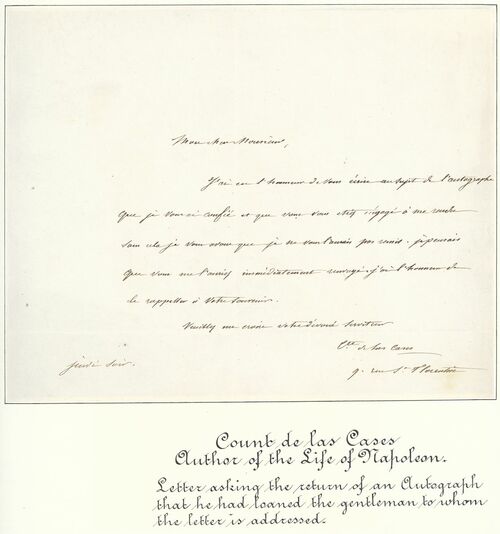 Mon cher Monsieur,
J'ai eu l'honneur de vous écrire au sujet de l'autographe
que je vous ai confié et que vous vous étiez engagé à me rendre
sans cela je vous avoue que je ne vous l'aurais pas remis. je pensais
que vous me l'auriez immédiatement renvoyé. j'ai l'honneur de
le rappeller à votre souvenir.
Veuillez me croire votre dévoué serviteur
Cte de las Cases
jeudi soir.
9. rue St Florentin
Count de las Cases
Author of the Life of Napoleon.
Letter asking the return of an Autograph
that he had loaned the gentleman to whom
the letter is addressed.